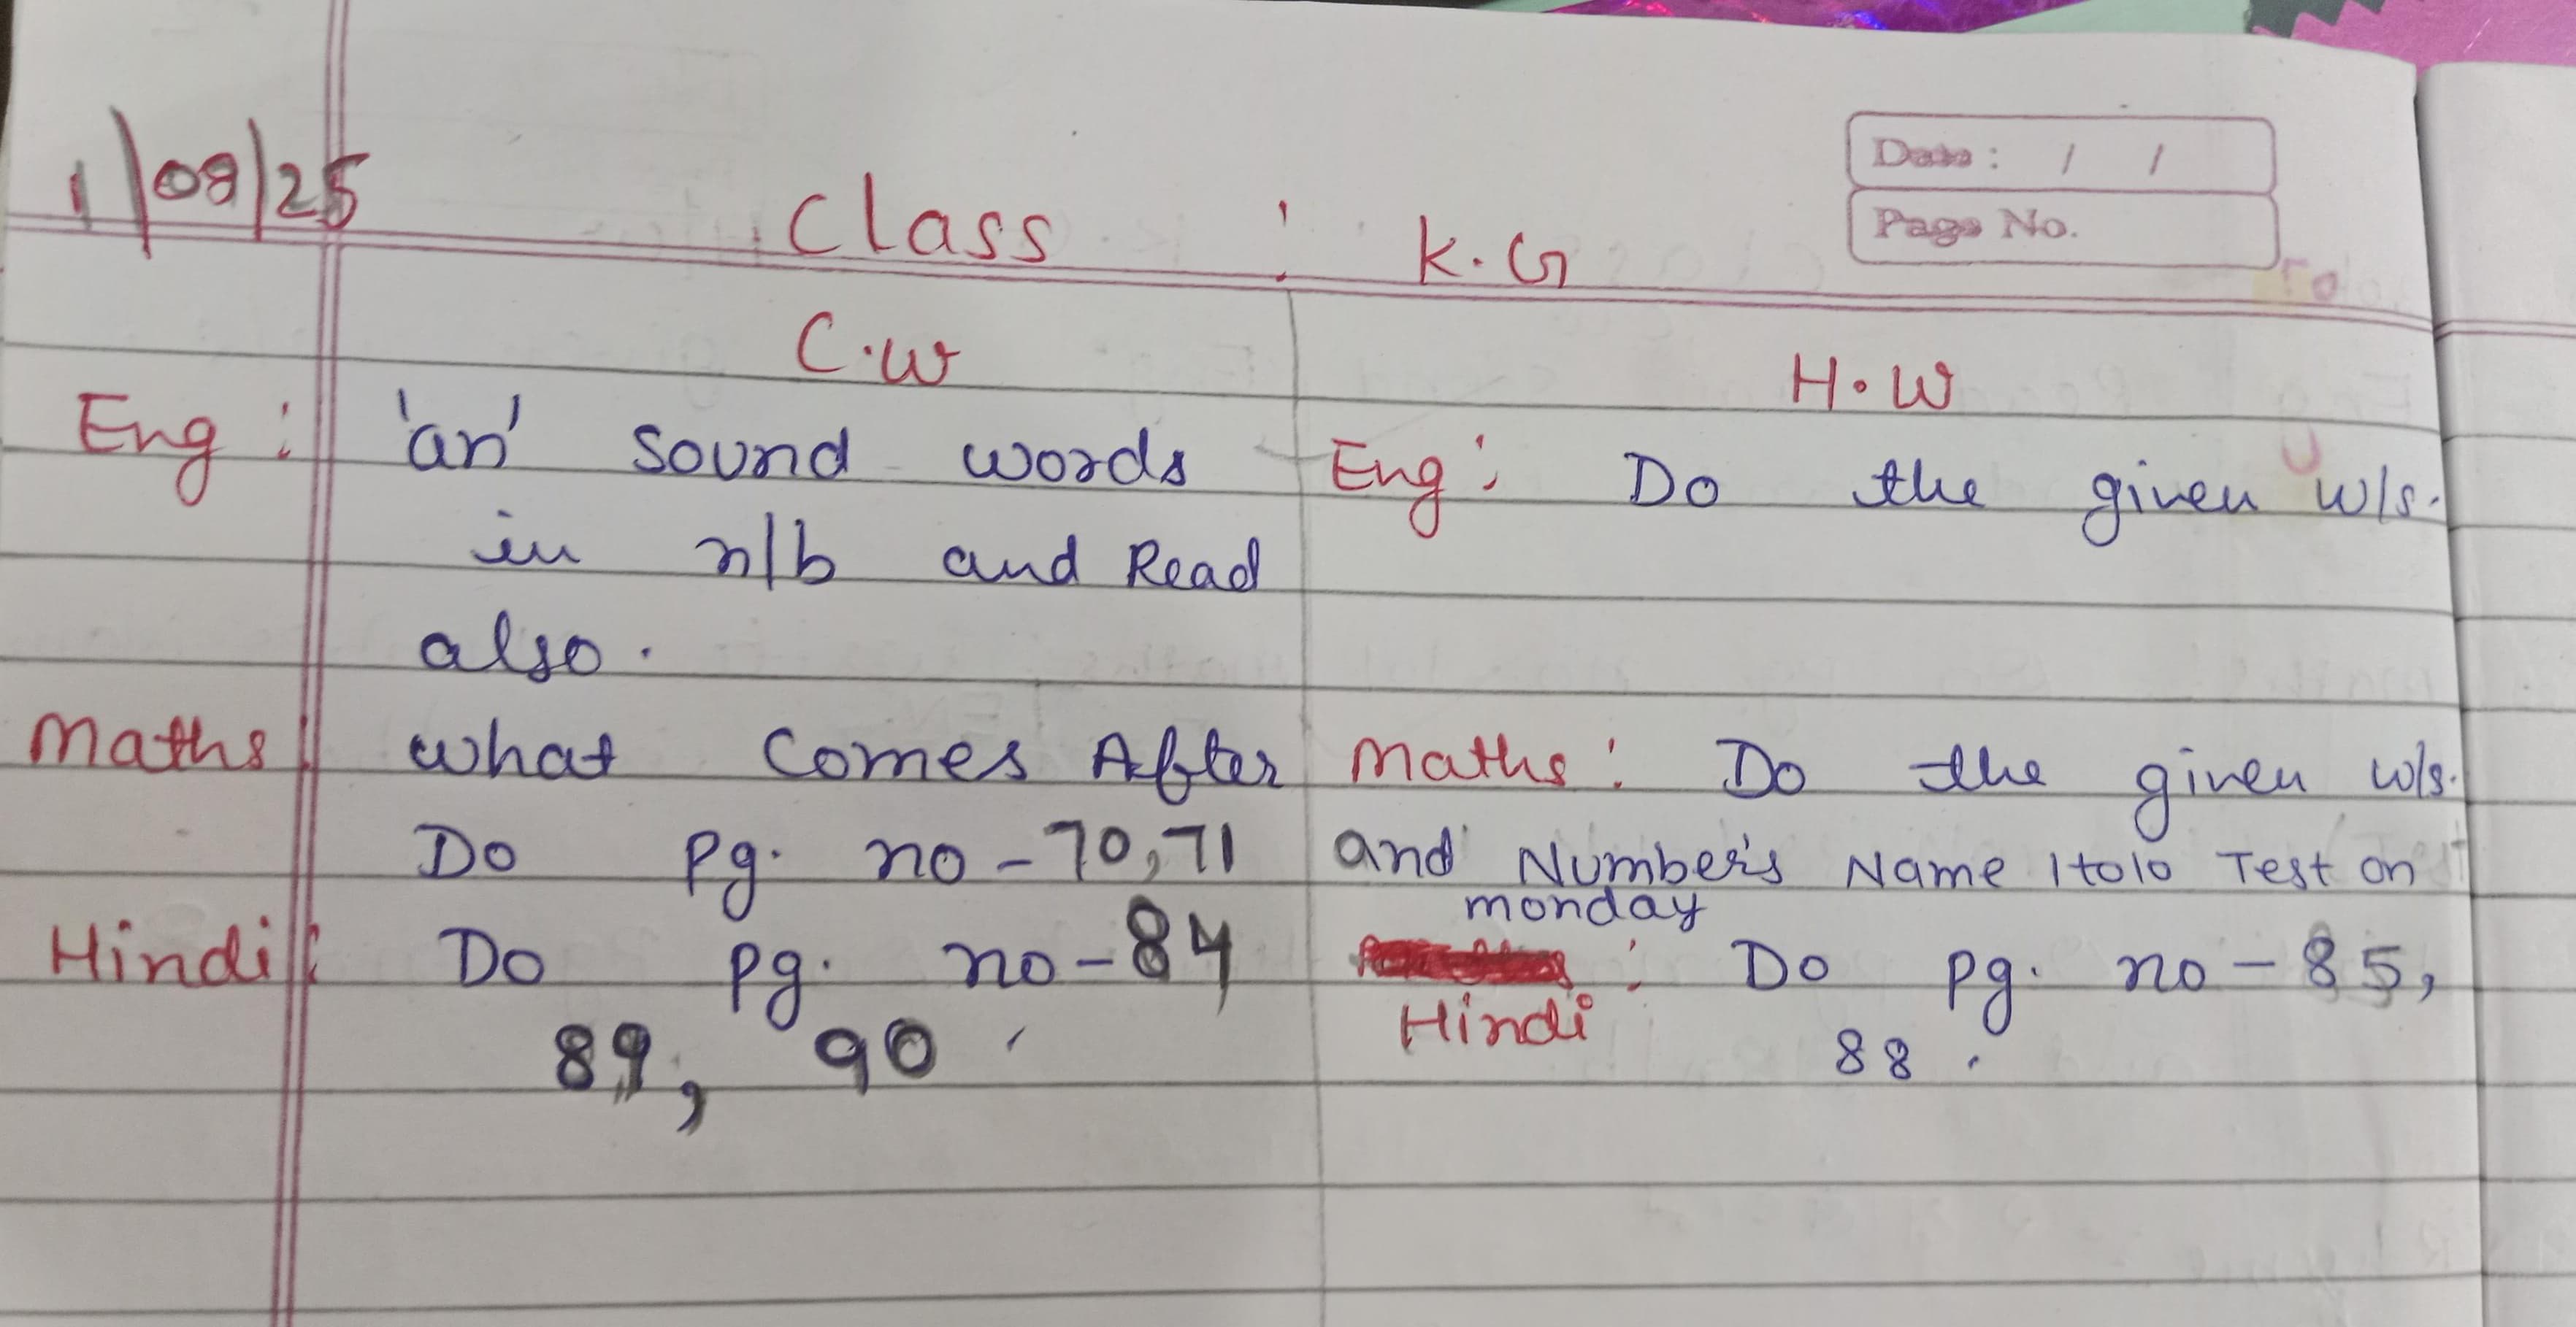 1/08/25
Class : K.G
Date : / /
Page No.
C.W
H.W
Eng : 'an' sound words
in n/b and Read
also.
Maths : what comes After
Do pg. no - 70, 71
Hindi : Do pg. no - 84
89, 90.
Eng : Do the given w/s.
Maths : Do the given w/s.
and Number's Name 1to10 Test on
monday
: Do pg. no - 85,
Hindi
88.